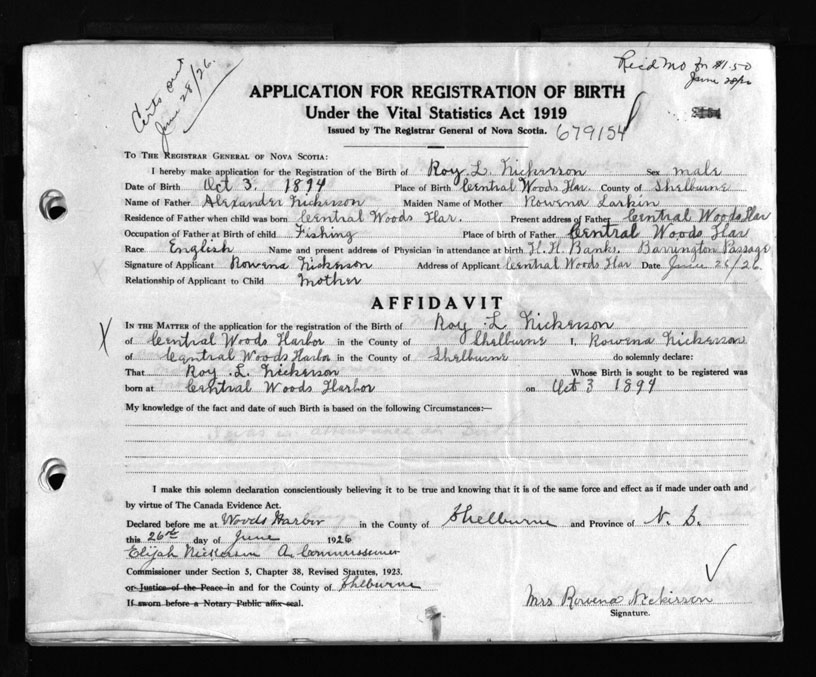 Certs out
June 28/26.
Rec'd MO for $1.50
June 28/26
APPLICATION FOR REGISTRATION OF BIRTH
Under the Vital Statistics Act 1919
Issued by The Registrar General of Nova Scotia. 679154
TO THE REGISTRAR GENERAL OF NOVA SCOTIA:
I hereby make application for the Registration of the Birth of Roy L. Nickerson Sex male
Date of Birth Oct 3. 1894 Place of Birth Central Woods Har. County of Shelburne
Name of Father Alexander Nickerson Maiden Name of Mother Rowena Larkin
Residence of Father when child was born Central Woods Har. Present address of Father Central Woods Har
Occupation of Father at Birth of child Fishing Place of birth of Father Central Woods Har
Race English Name and present address of Physician in attendance at birth H. H. Banks. Barrington Passage
Signature of Applicant Rowena Nickerson Address of Applicant Central Woods Har Date June 26/26.
Relationship of Applicant to Child Mother
AFFIDAVIT
IN THE MATTER of the application for the registration of the Birth of Roy L Nickerson
of Central Woods Harbor in the County of Shelburne I, Rowena Nickerson
of Central Woods Harbor in the County of Shelburne do solemnly declare:
That Roy L. Nickerson Whose Birth is sought to be registered was
born at Central Woods Harbor on Oct 3 1894
My knowledge of the fact and date of such Birth is based on the following Circumstances:—
I make this solemn declaration conscientiously believing it to be true and knowing that it is of the same force and effect as if made under oath and
by virtue of The Canada Evidence Act.
Declared before me at Woods Harbor in the County of Shelburne and Province of N. S.
this 26th day of June 1926
Elijah Nickerson A Commissioner
Commissioner under Section 5, Chapter 38, Revised Statutes, 1923.
or Justice of the Peace in and for the County of Shelburne
If sworn before a Notary Public affix seal.
Mrs Rowena Nickerson
Signature.